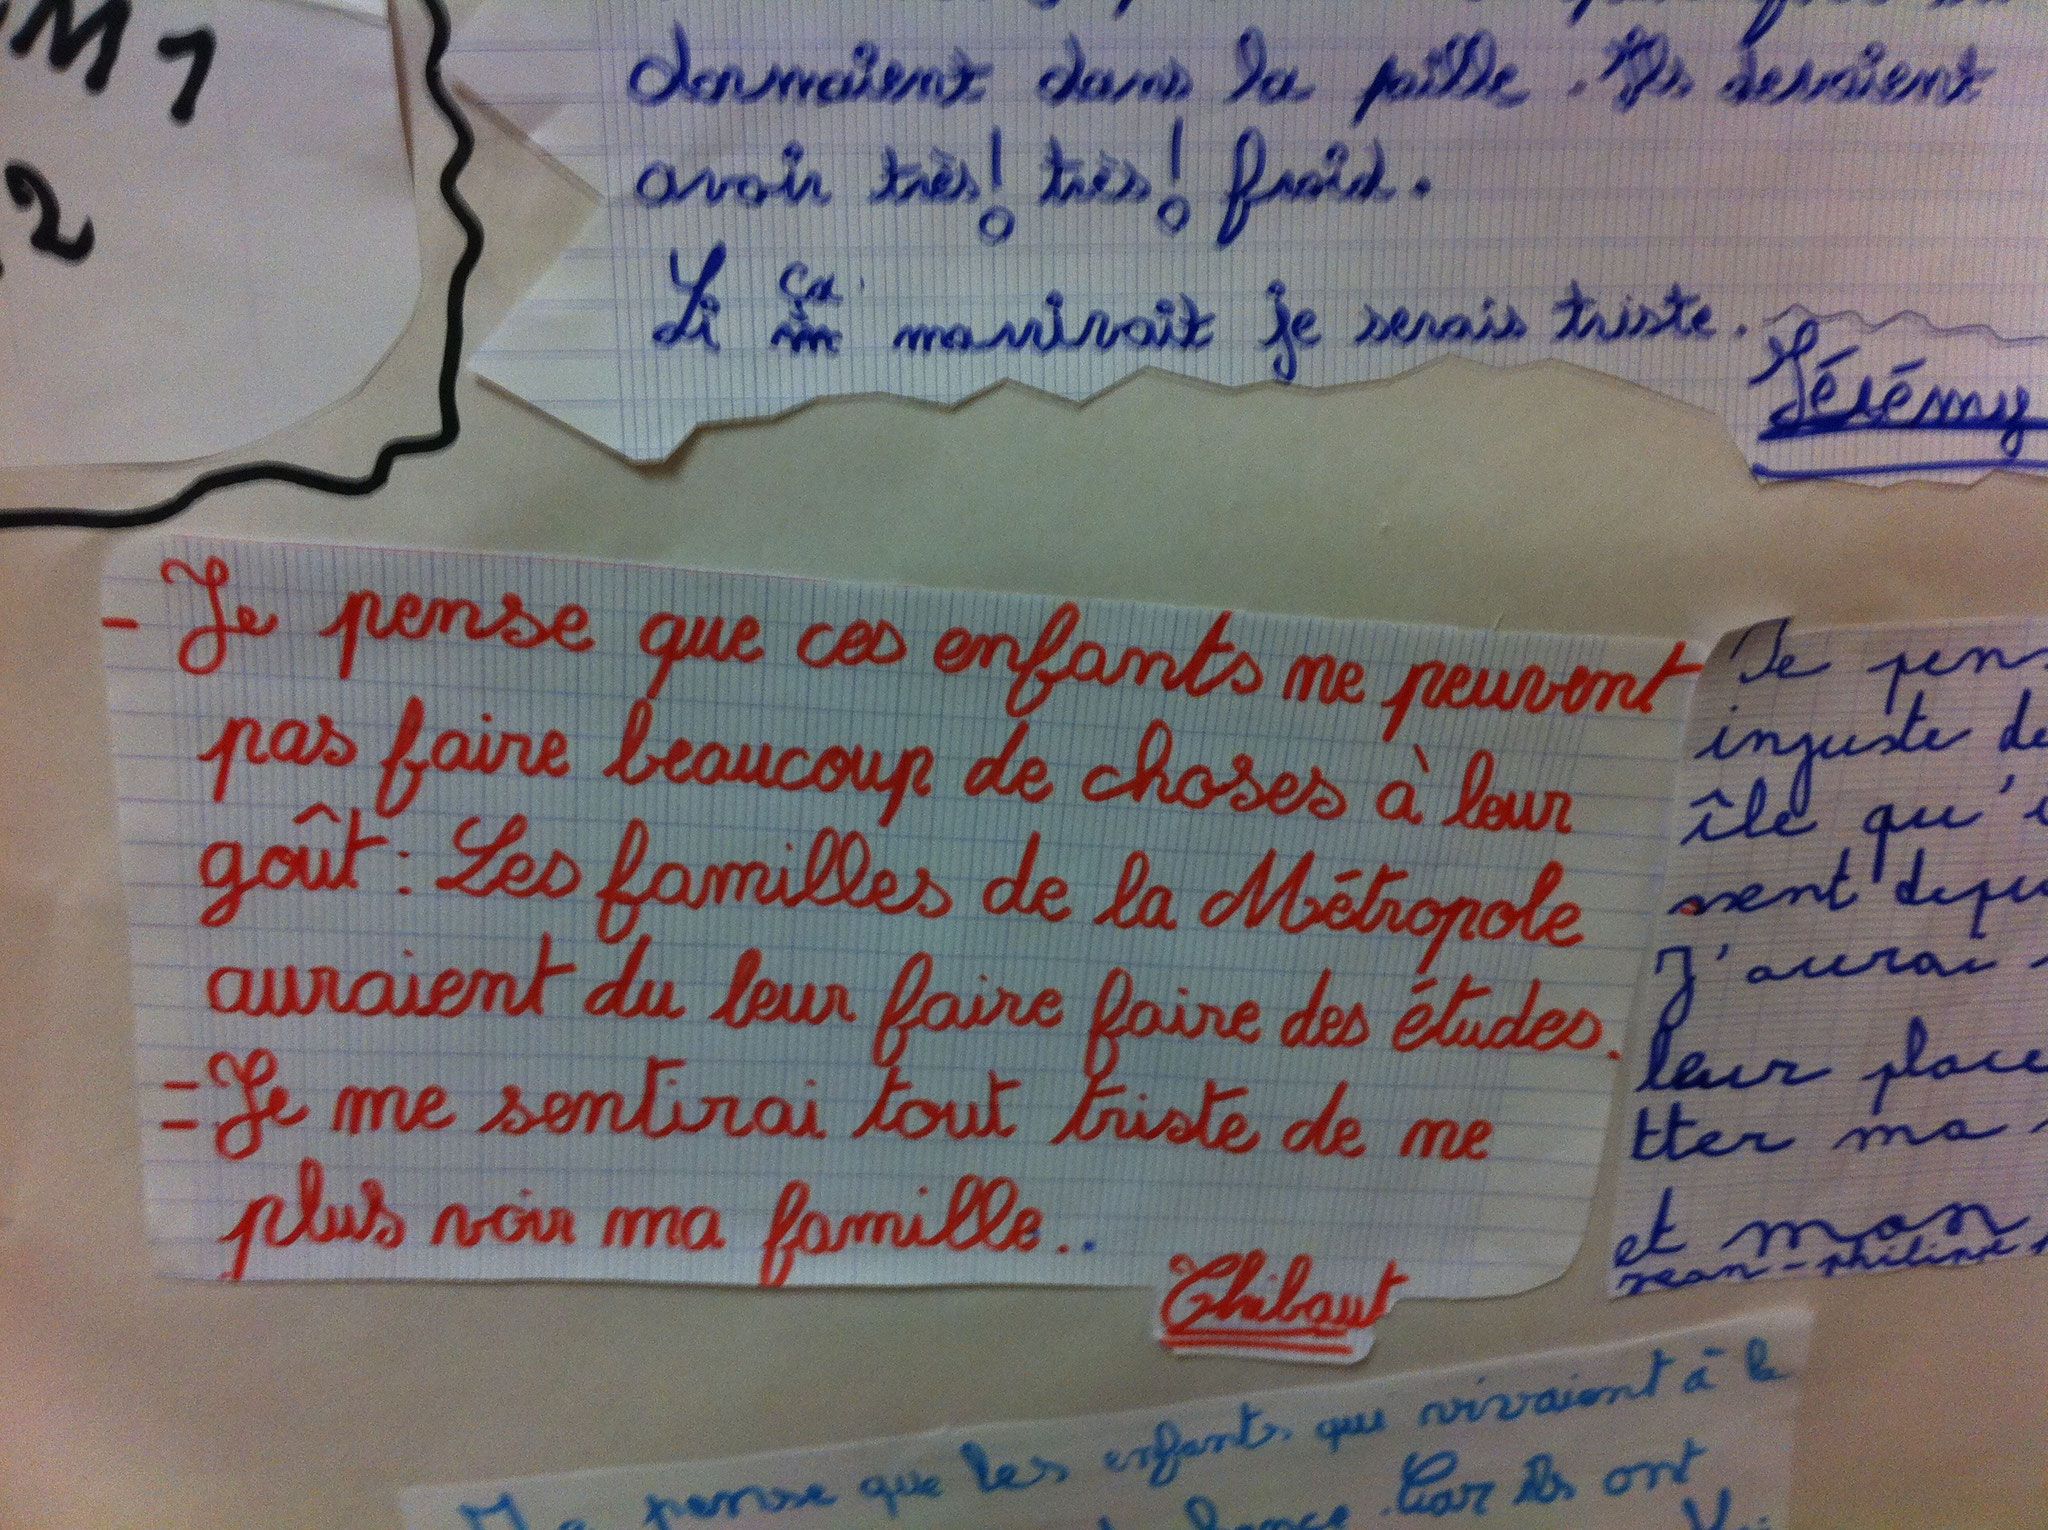 M1
2
dormaient dans la paille. Ils devaient
avoir très! très! froid.
Si ça m'arrivait je serais triste.
Jérémy
- Je pense que ces enfants ne peuvent
pas faire beaucoup de choses à leur
goût : Les familles de la Métropole
auraient du leur faire faire des études.
= Je me sentirai tout triste de ne
plus voir ma famille..
Thibaut
Je pens
injuste de
île qu'
nent depu
J'aurai
leur place
tter ma
et mon
Jean-philippe
Je pense que les enfants qui vivaient à la
chance. Car ils ont